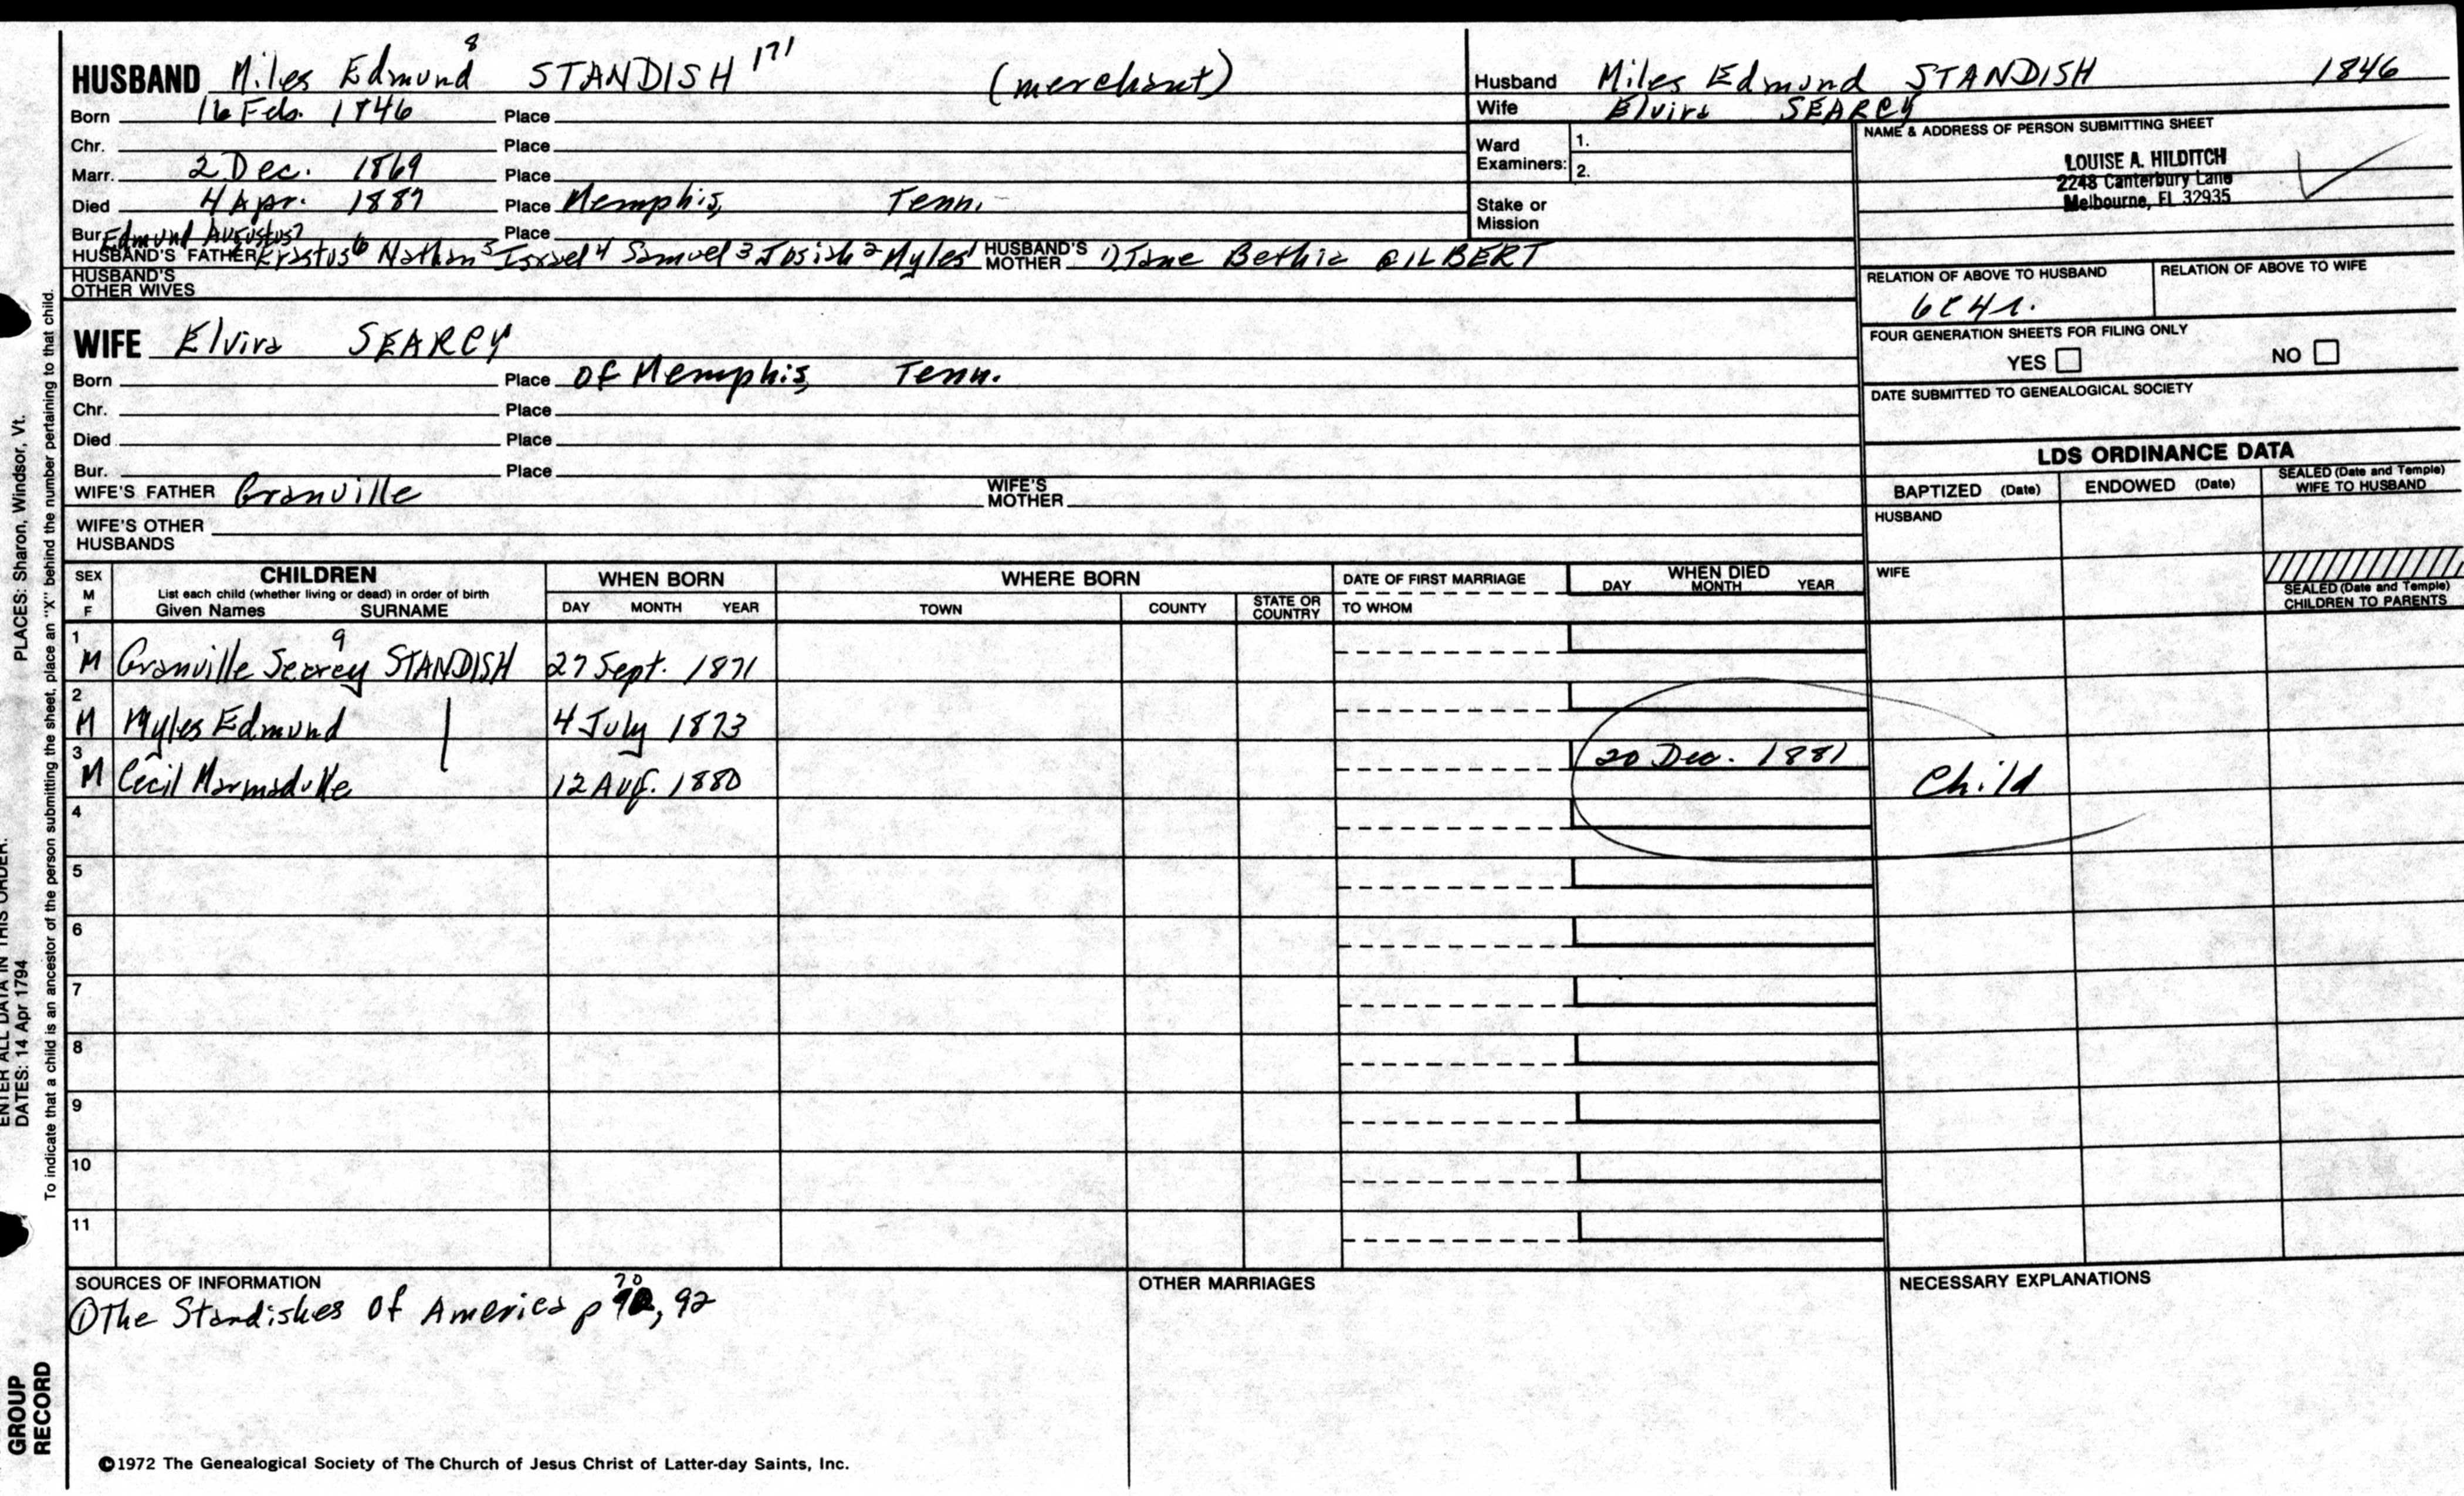 HUSBAND Miles Edmund 8 STANDISH 171 (merchant)
Born 16 Feb. 1846 Place
Chr. Place
Marr. 2 Dec. 1869 Place
Died 4 Apr. 1887 Place Memphis, Tenn.
Bur. Place
Edmund Augustus 7
HUSBAND'S FATHER Erastus 6 Nathan 5 Israel 4 Samuel 3 Josiah 2 Myles 1 HUSBAND'S MOTHER 1) Jane Bethia GILBERT
HUSBAND'S OTHER WIVES
Husband Miles Edmund STANDISH 1846
Wife Elvira SEARCY
Ward Examiners: 1.
2.
Stake or Mission
NAME & ADDRESS OF PERSON SUBMITTING SHEET
LOUISE A. HILDITCH
2248 Canterbury Lane
Melbourne, FL 32935
RELATION OF ABOVE TO HUSBAND RELATION OF ABOVE TO WIFE
6C4r.
FOUR GENERATION SHEETS FOR FILING ONLY
YES NO
DATE SUBMITTED TO GENEALOGICAL SOCIETY
WIFE Elvira SEARCY
Born Place of Memphis, Tenn.
Chr. Place
Died Place
Bur. Place
WIFE'S FATHER Granville WIFE'S MOTHER
WIFE'S OTHER HUSBANDS
LDS ORDINANCE DATA
BAPTIZED (Date) ENDOWED (Date) SEALED (Date and Temple) WIFE TO HUSBAND
HUSBAND
WIFE
SEALED (Date and Temple) CHILDREN TO PARENTS
SEX M F CHILDREN WHEN BORN WHERE BORN DATE OF FIRST MARRIAGE WHEN DIED
List each child (whether living or dead) in order of birth
Given Names SURNAME DAY MONTH YEAR TOWN COUNTY STATE OR COUNTRY TO WHOM DAY MONTH YEAR
1 M Granville Searcy 9 STANDISH 27 Sept. 1871
2 M Myles Edmund | 4 July 1873
3 M Cecil Marmaduke 12 Aug. 1880 20 Dec. 1881 Child
4
5
6
7
8
9
10
11
SOURCES OF INFORMATION
①The Standishes of America p 70, 92
OTHER MARRIAGES
NECESSARY EXPLANATIONS
©1972 The Genealogical Society of The Church of Jesus Christ of Latter-day Saints, Inc.
ENTER ALL DATA IN THIS ORDER:
DATES: 14 Apr 1794 PLACES: Sharon, Windsor, Vt.
To indicate that a child is an ancestor of the person submitting the sheet, place an "X" behind the number pertaining to that child.
GROUP
RECORD